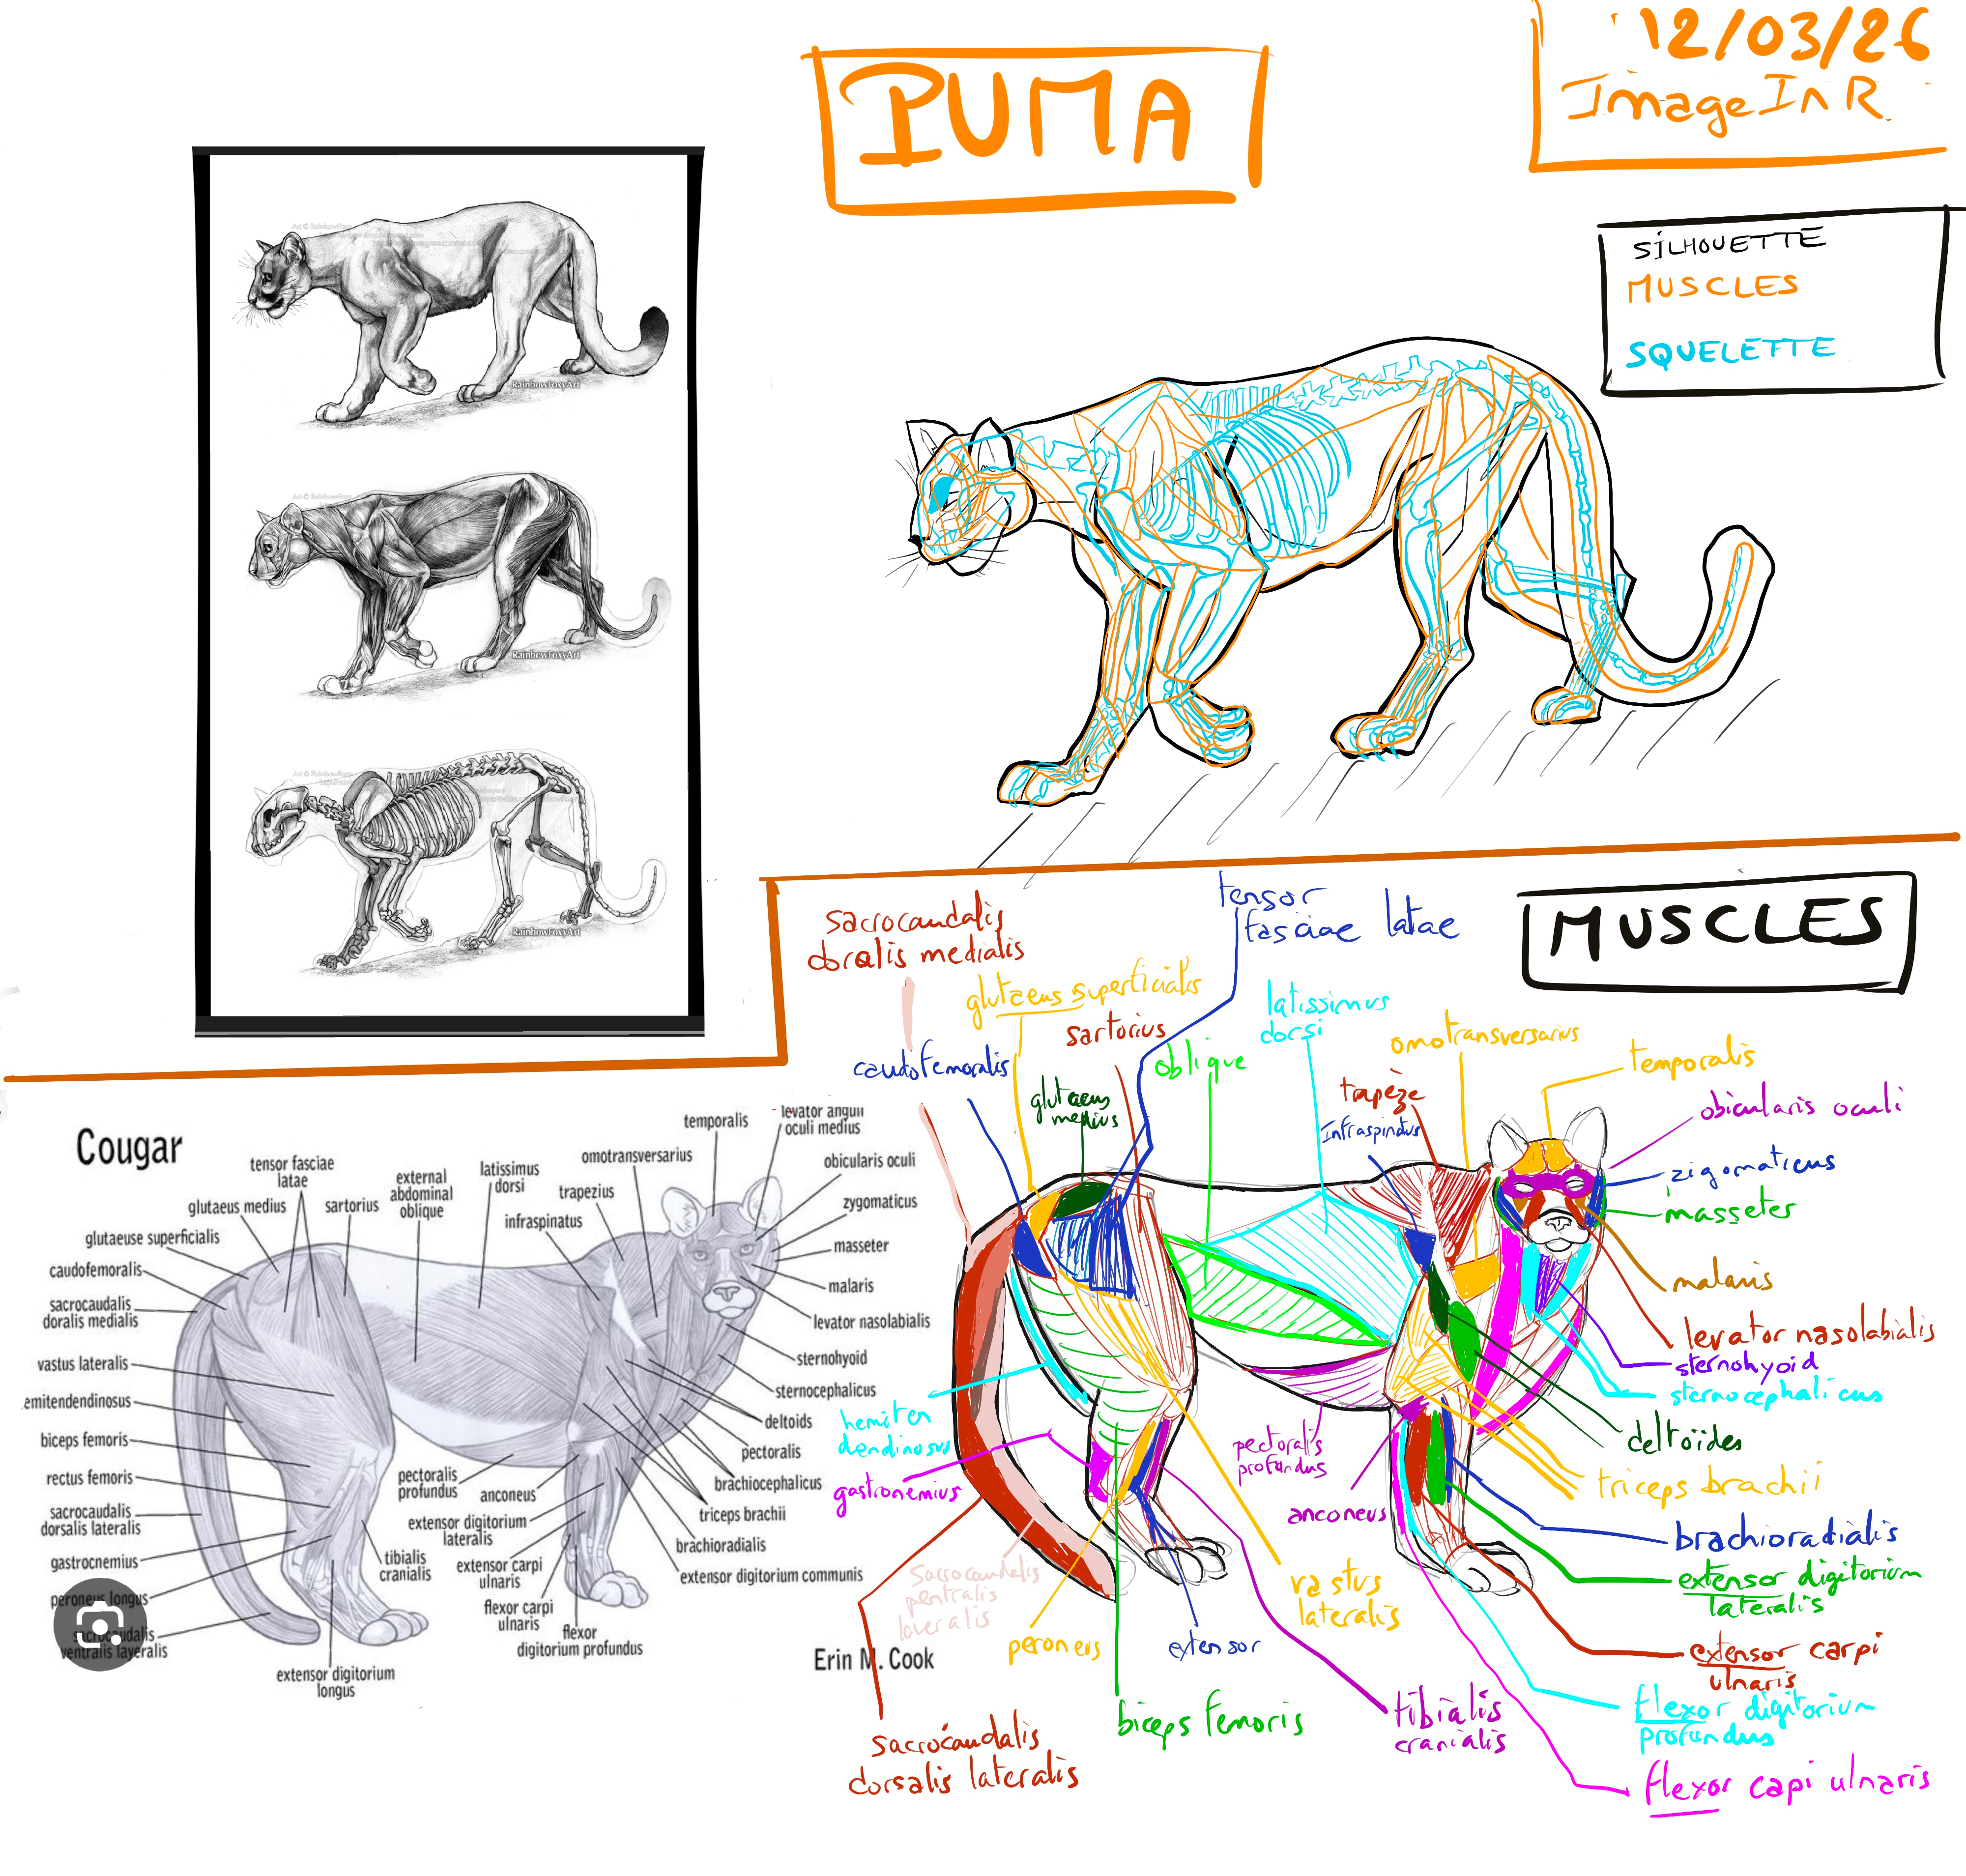 PUMA
12/03/26
ImageInR
SILHOUETTE
MUSCLES
SQUELETTE
Art © RainbowFoxy
RainbowFoxyArt
Art © RainbowFoxy
RainbowFoxyArt
Art © RainbowFoxy
RainbowFoxyArt
MUSCLES
Cougar
temporalis
levator anguli
oculi medius
obicularis oculi
zygomaticus
masseter
malaris
levator nasolabialis
sternohyoid
sternocephalicus
deltoids
pectoralis
brachiocephalicus
triceps brachii
brachioradialis
extensor digitorium communis
omotransversarius
trapezius
infraspinatus
latissimus
dorsi
external
abdominal
oblique
sartorius
tensor fasciae
latae
glutaeus medius
glutaeuse superficialis
caudofemoralis
sacrocaudalis
doralis medialis
vastus lateralis
emitendendinosus
biceps femoris
rectus femoris
sacrocaudalis
dorsalis lateralis
gastrocnemius
peroneus longus
sacrocaudalis
ventralis layeralis
extensor digitorium
longus
tibialis
cranialis
pectoralis
profundus
anconeus
extensor digitorium
lateralis
extensor carpi
ulnaris
flexor carpi
ulnaris
flexor
digitorium profundus
Erin M. Cook
sacrocaudalis
doralis medialis
tensor
fasciae latae
glutaeus superficialis
sartorius
caudofemoralis
glutaeus
medius
oblique
latissimus
dorsi
omotransversarius
trapèze
Infraspindus
temporalis
obicularis oculi
zigomaticus
masseter
malaris
levator nasolabialis
sternohyoid
sternocephalicus
deltoïdes
triceps brachii
brachioradialis
extensor digitorium
lateralis
extensor carpi
ulnaris
flexor digitorium
profundus
flexor capi ulnaris
hemiten
dendinosus
gastronemius
pectoralis
profundus
anconeus
Sacrocaudalis
pentralis
laveralis
peroneus
extensor
vastus
lateralis
biceps femoris
tibialis
cranialis
sacrocaudalis
dorsalis lateralis